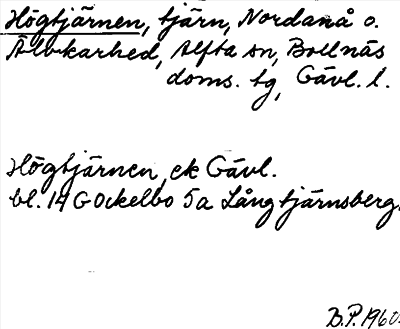 Högtjärnen, tjärn, Nordanå o.
Älvkarhed, Alfta sn, Bollnäs
doms. tg, Gävl. l.
Högtjärnen, ek Gävl.
bl. 14 G Ockelbo 5a Långtjärnsberg.
B.P. 1960.